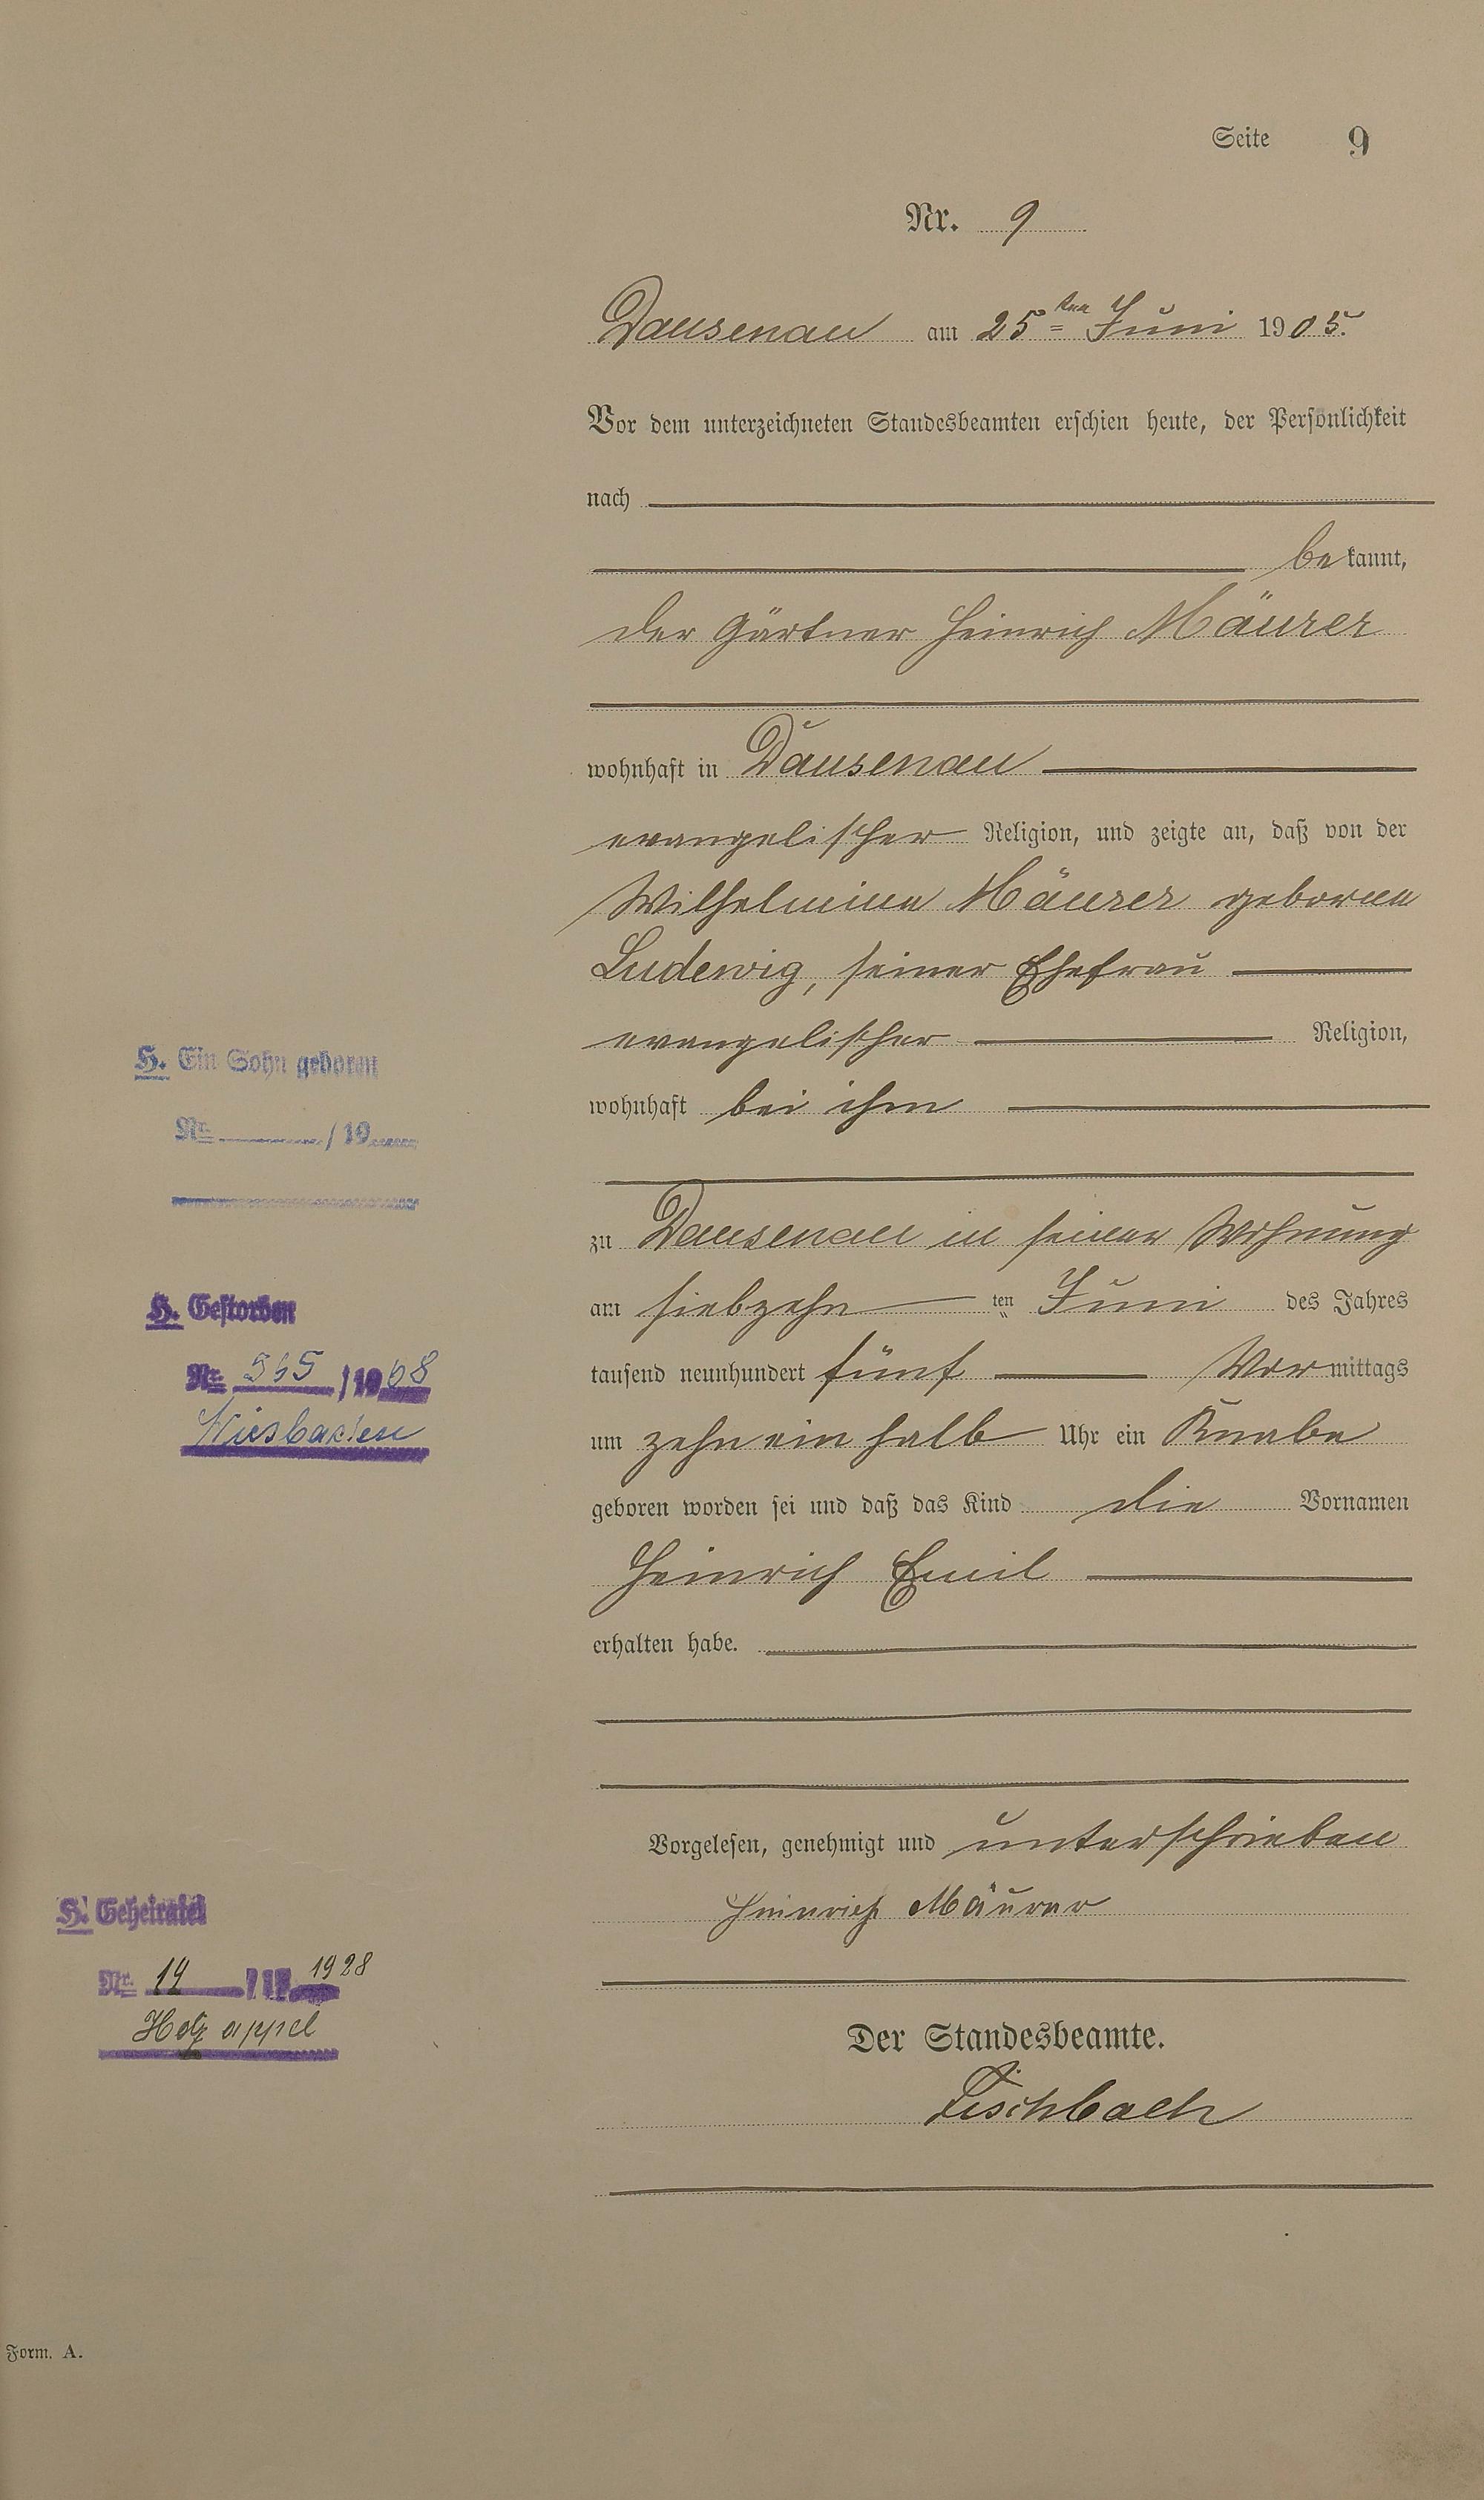 Seite 9
Nr. 9
Dausenau am 25ten Juni 1905.
Vor dem unterzeichneten Standesbeamten erschien heute, der Persönlichkeit
nach
bekannt,
der Gärtner Heinrich Mäurer
wohnhaft in Dausenau
evangelischer Religion, und zeigte an, daß von der
Wilhelmine Mäurer geborene
Ludewig, seiner Ehefrau
evangelischer Religion,
wohnhaft bei ihm
zu Dausenau in seiner Wohnung
am siebzehn ten Juni des Jahres
tausend neunhundert fünf Vormittags
um zehn ein halb Uhr ein Knabe
geboren worden sei und daß das Kind die Vornamen
Heinrich Emil
erhalten habe.
Vorgelesen, genehmigt und unterschrieben
Heinrich Mäurer
Der Standesbeamte.
Fischbach
H. Ein Sohn geboren
Nr. / 19
H. Gestorben
Nr. /1968
Wiesbaden
H. Geheiratet
Nr. /1928
Holzappel
Form. A.